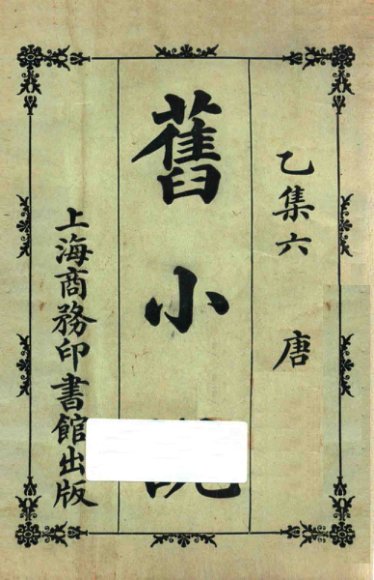 乙集六 唐
舊小
上海商務印書館出版